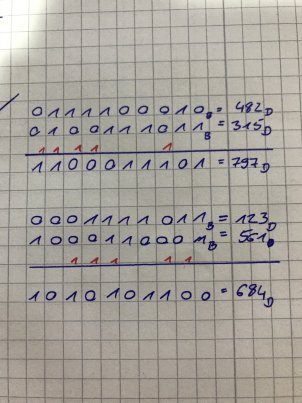 0111100010B = 482D
0100111011B = 315D
1 1 1 1 1
1100011101 = 797D
0001111011B = 123D
1000110001B = 561D
1 1 1 1 1
1010101100 = 684D